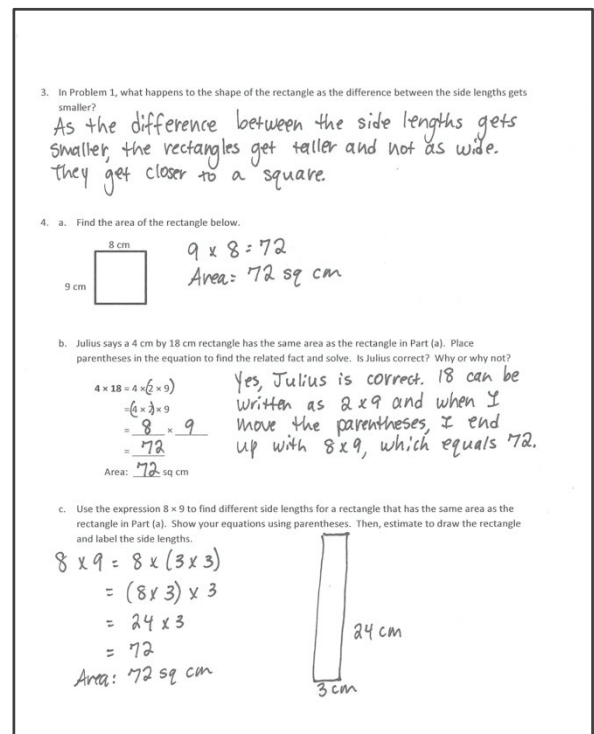 3. In Problem 1, what happens to the shape of the rectangle as the difference between the side lengths gets
smaller?
As the difference between the side lengths gets
smaller, the rectangles get taller and not as wide.
They get closer to a square.
4. a. Find the area of the rectangle below.
8 cm
9 cm
9 x 8 = 72
Area: 72 sq cm
b. Julius says a 4 cm by 18 cm rectangle has the same area as the rectangle in Part (a). Place
parentheses in the equation to find the related fact and solve. Is Julius correct? Why or why not?
4 × 18 = 4 × (2 × 9)
= (4 × 2) × 9
= 8 × 9
= 72
Area: 72 sq cm
Yes, Julius is correct. 18 can be
written as 2x9 and when I
move the parentheses, I end
up with 8x9, which equals 72.
c. Use the expression 8 × 9 to find different side lengths for a rectangle that has the same area as the
rectangle in Part (a). Show your equations using parentheses. Then, estimate to draw the rectangle
and label the side lengths.
8 x 9 = 8 x (3 x 3)
= (8 x 3) x 3
= 24 x 3
= 72
Area: 72 sq cm
24 cm
3 cm